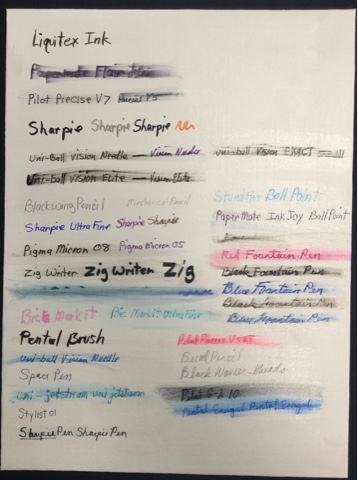 Liquitex Ink
Papermate Flair
Pilot Precise V7 Precise V5
Sharpie Sharpie Sharpie
Uni-Ball Vision Needle Vision Needle
Uni-Ball Vision Elite Vision Elite
Blackwing Pencil Mechanical Pencil
Sharpie Ultra Fine Sharpie Sharpie
Pigma Micron 08 Pigma Micron 05
Zig Writer Zig Writer Zig
Bic Mark it Bic Markit Ultrafine
Pental Brush
Uni-ball Vision Needle
Space Pen
uni-jetstrom uni jetstrom
Stylist 01
Sharpie Pen Sharpie Pen
uni-ball Vision EXACT
Staedtler Ball Point
PaperMate InkJoy BallPoint
Red Fountain Pen
Black Fountain Pen
Blue Fountain Pen
Black Fountain Pen
Blue Fountain Pen
Pilot Precise V5RT
Pencil
Black Warrior
Pilot G-2 10
Pental Energel Pental Energel